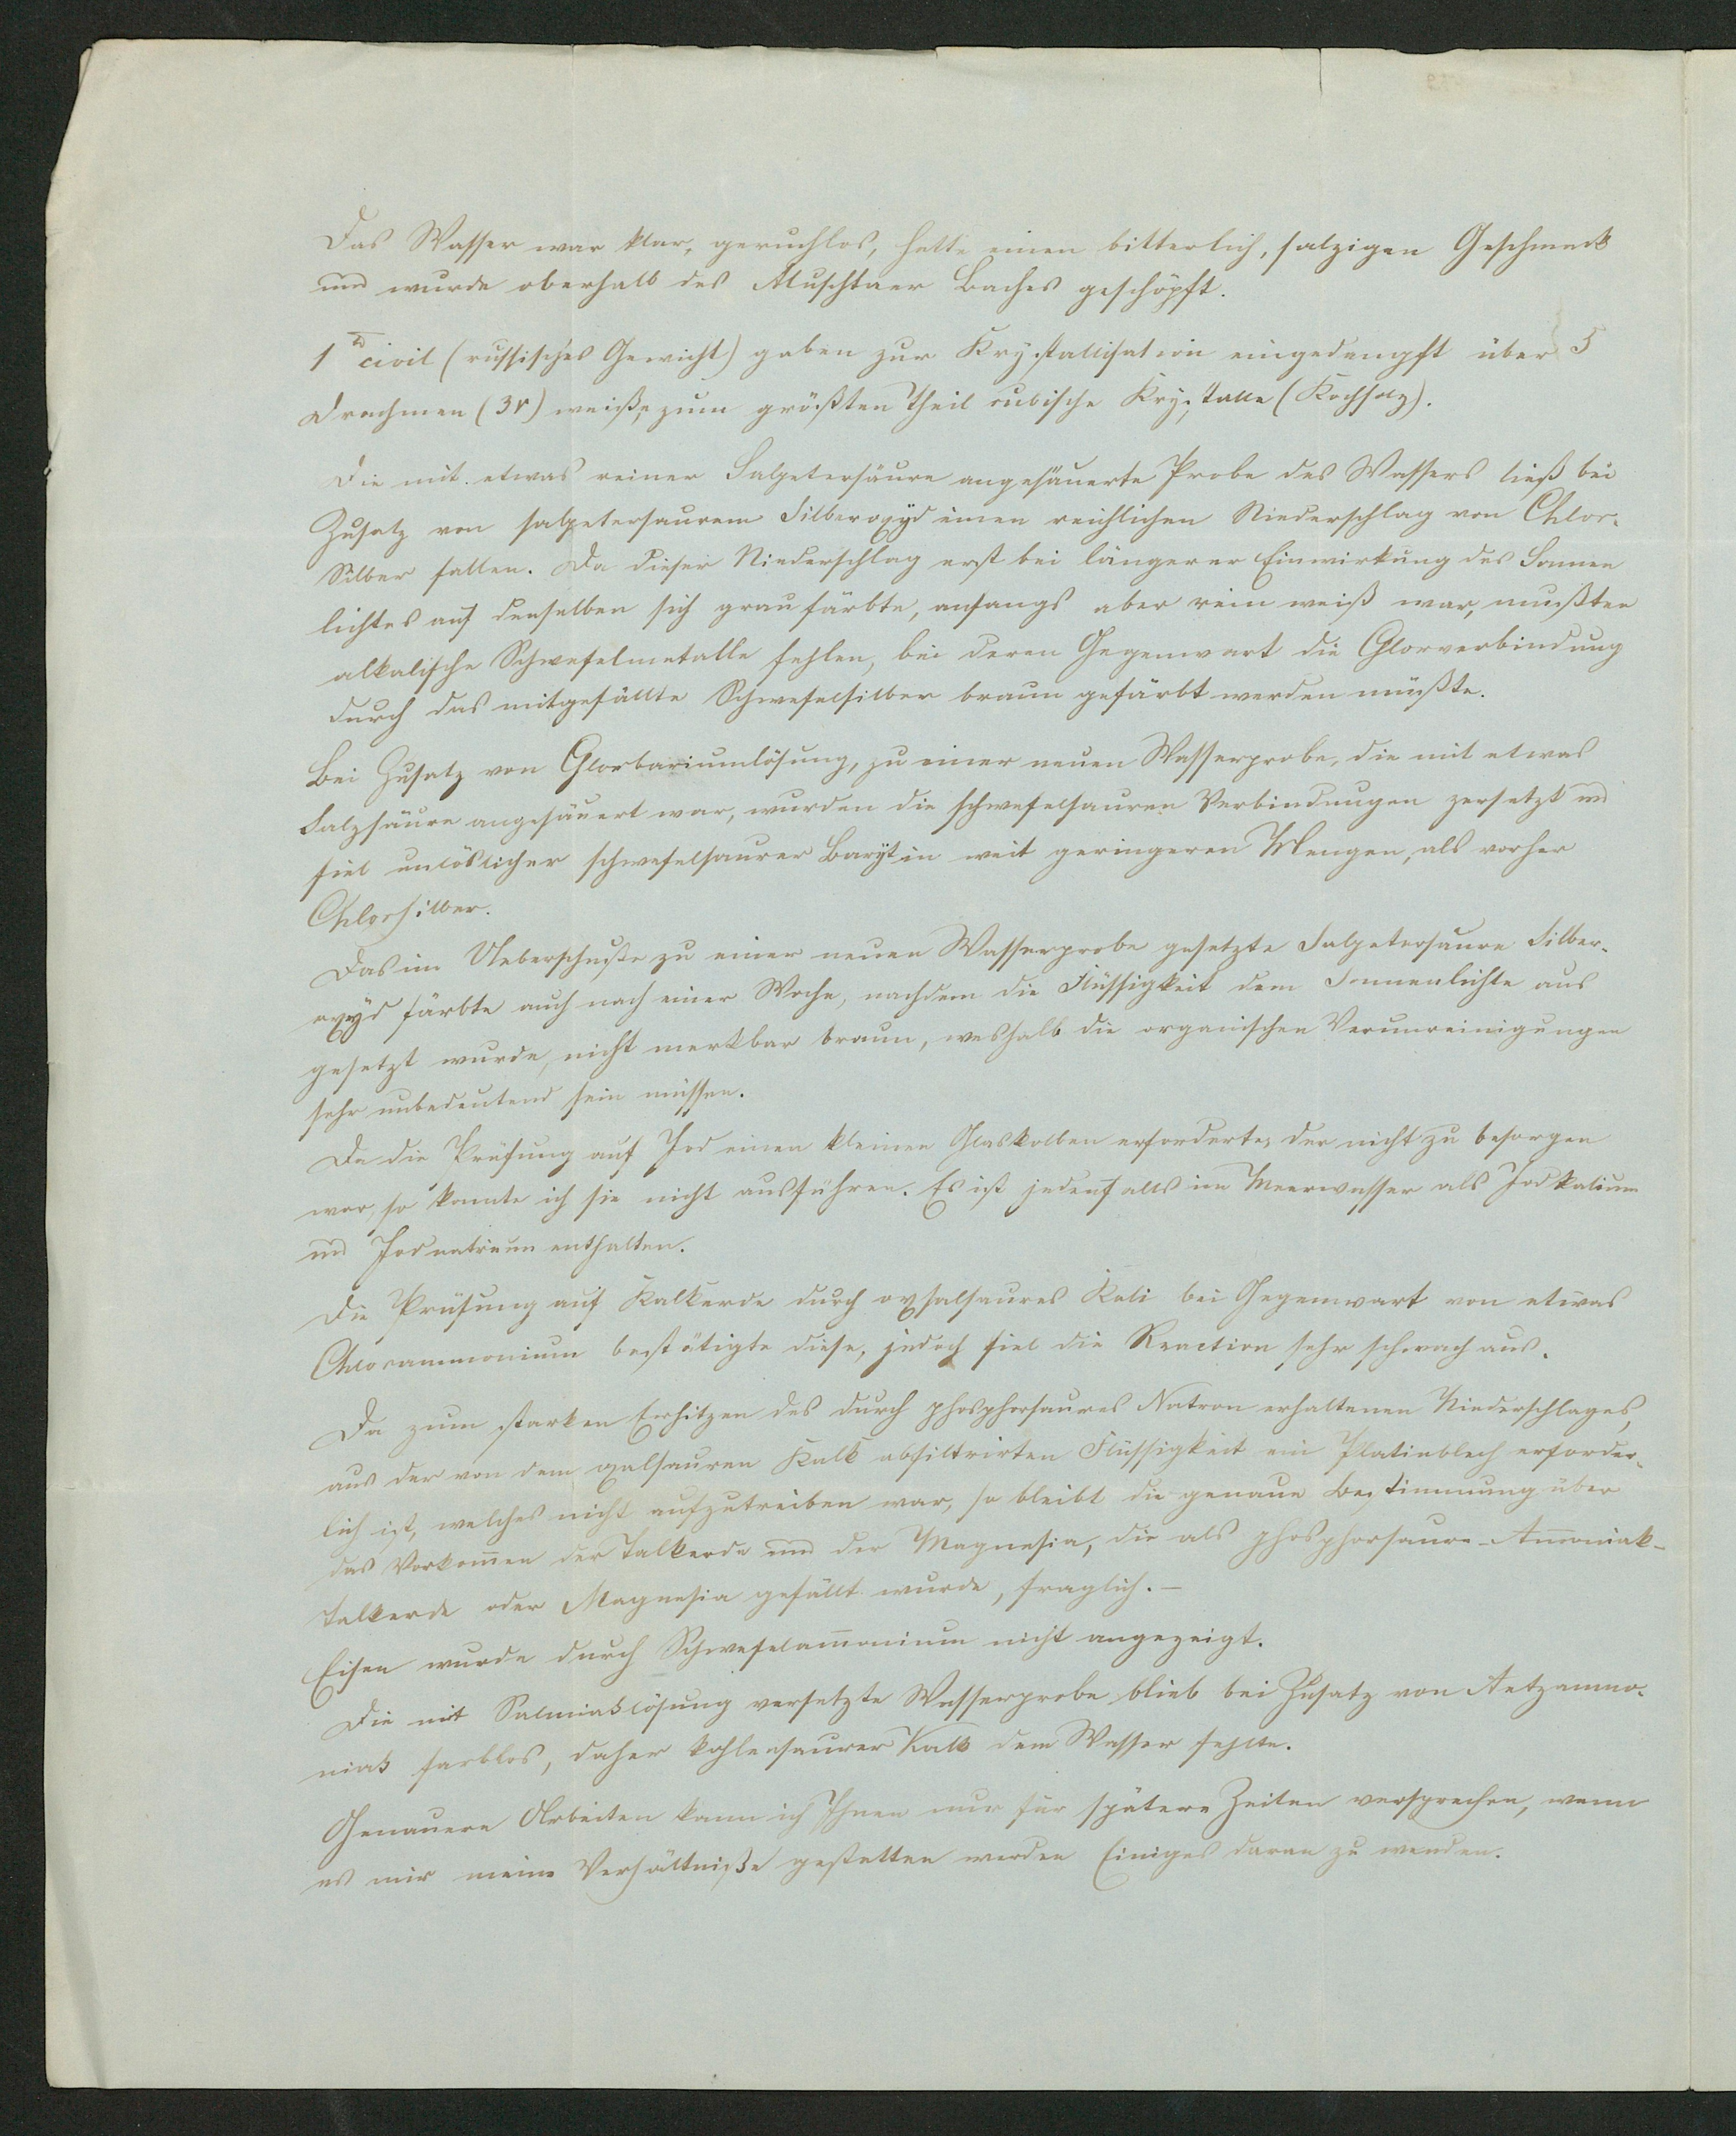 Das Wasser war klar, geruchlos, hatte einen bitterlich, salzigen Geschmack
und wurde oberhalb des Aluschtaer Baches geschöpft.
1 ℔ civil (russisches Gewicht) gaben zur Krystallisation eingedampft über 5
Drachmen (3v) weiße, zum größten Theil cubische Krystalle (Kochsalz).
Die mit etwas reiner Salpetersäure angesäuerte Probe des Wassers ließ bei
Zusatz von salpetersaurem Silberoxyd einen reichlichen Niederschlag von Chlor-
Silber fallen. Da dieser Niederschlag erst bei längerer Einwirkung des Sonnen
lichtes auf denselben sich grau färbte, anfangs aber rein weiß war, mußten
alkalische Schwefelmetalle fehlen, bei deren Gegenwart die Chlorverbindung
durch das mitgefällte Schwefelsilber braun gefärbt werden müßte.
Bei Zusatz von Chlorbariumlösung, zu einer neuen Wasserprobe, die mit etwas
Salzsäure angesäuert war, wurden die schwefelsauren Verbindungen zersetzt und
fiel unlöslicher schwefelsaurer Baryt in weit geringeren Mengen, als vorher
Chlorsilber.
Das im Ueberschuße zu einer neuen Wasserprobe gesetzte Salpetersaure Silber-
oxyd färbte auch nach einer Woche, nachdem die Flüssigkeit dem Sonnenlichte aus
gesetzt wurde, nicht merkbar braun, weshalb die organischen Verunreinigungen
sehr unbedeutend sein müssen.
Da die Prüfung auf Jod einen kleinen Glaskolben erforderte, der nicht zu besorgen
war, so konnte ich sie nicht ausführen. Es ist jedenfalls im Meerwasser als Jodkalium
und Jodnatrium enthalten.
Die Prüfung auf Kalkerde durch oxsalsaures Kali bei Gegenwart von etwas
Chlorammonium bestätigte diese, jedoch fiel die Reaction sehr schwach aus.
Da zum starken Erhitzen des durch phosphorsaures Natron erhaltenen Niederschlages,
aus der von dem oxalsauren Kalk abfiltrirten Flüssigkeit ein Platinblech erforder-
lich ist, welches nicht aufzutreiben war, so bleibt die genaue Bestimmung über
das Vorkom̅en der Talkerde und der Magnesia, die als phosphorsaure-Am̅oniak-
Talkerde oder Magnesia gefällt wurde, fraglich. —
Eisen wurde durch Schwefelam̅onium nicht angezeigt.
Die mit Salmiaklösung versetzte Wasserprobe blieb bei Zusatz von Aetzammo-
niak farblos, daher kohlensaurer Kalk dem Wasser fehlte.
Genauere Arbeiten kann ich Ihnen nur für spätere Zeiten versprechen, wenn
es mir meine Verhältniße gestatten werden Einiges daran zu wenden.